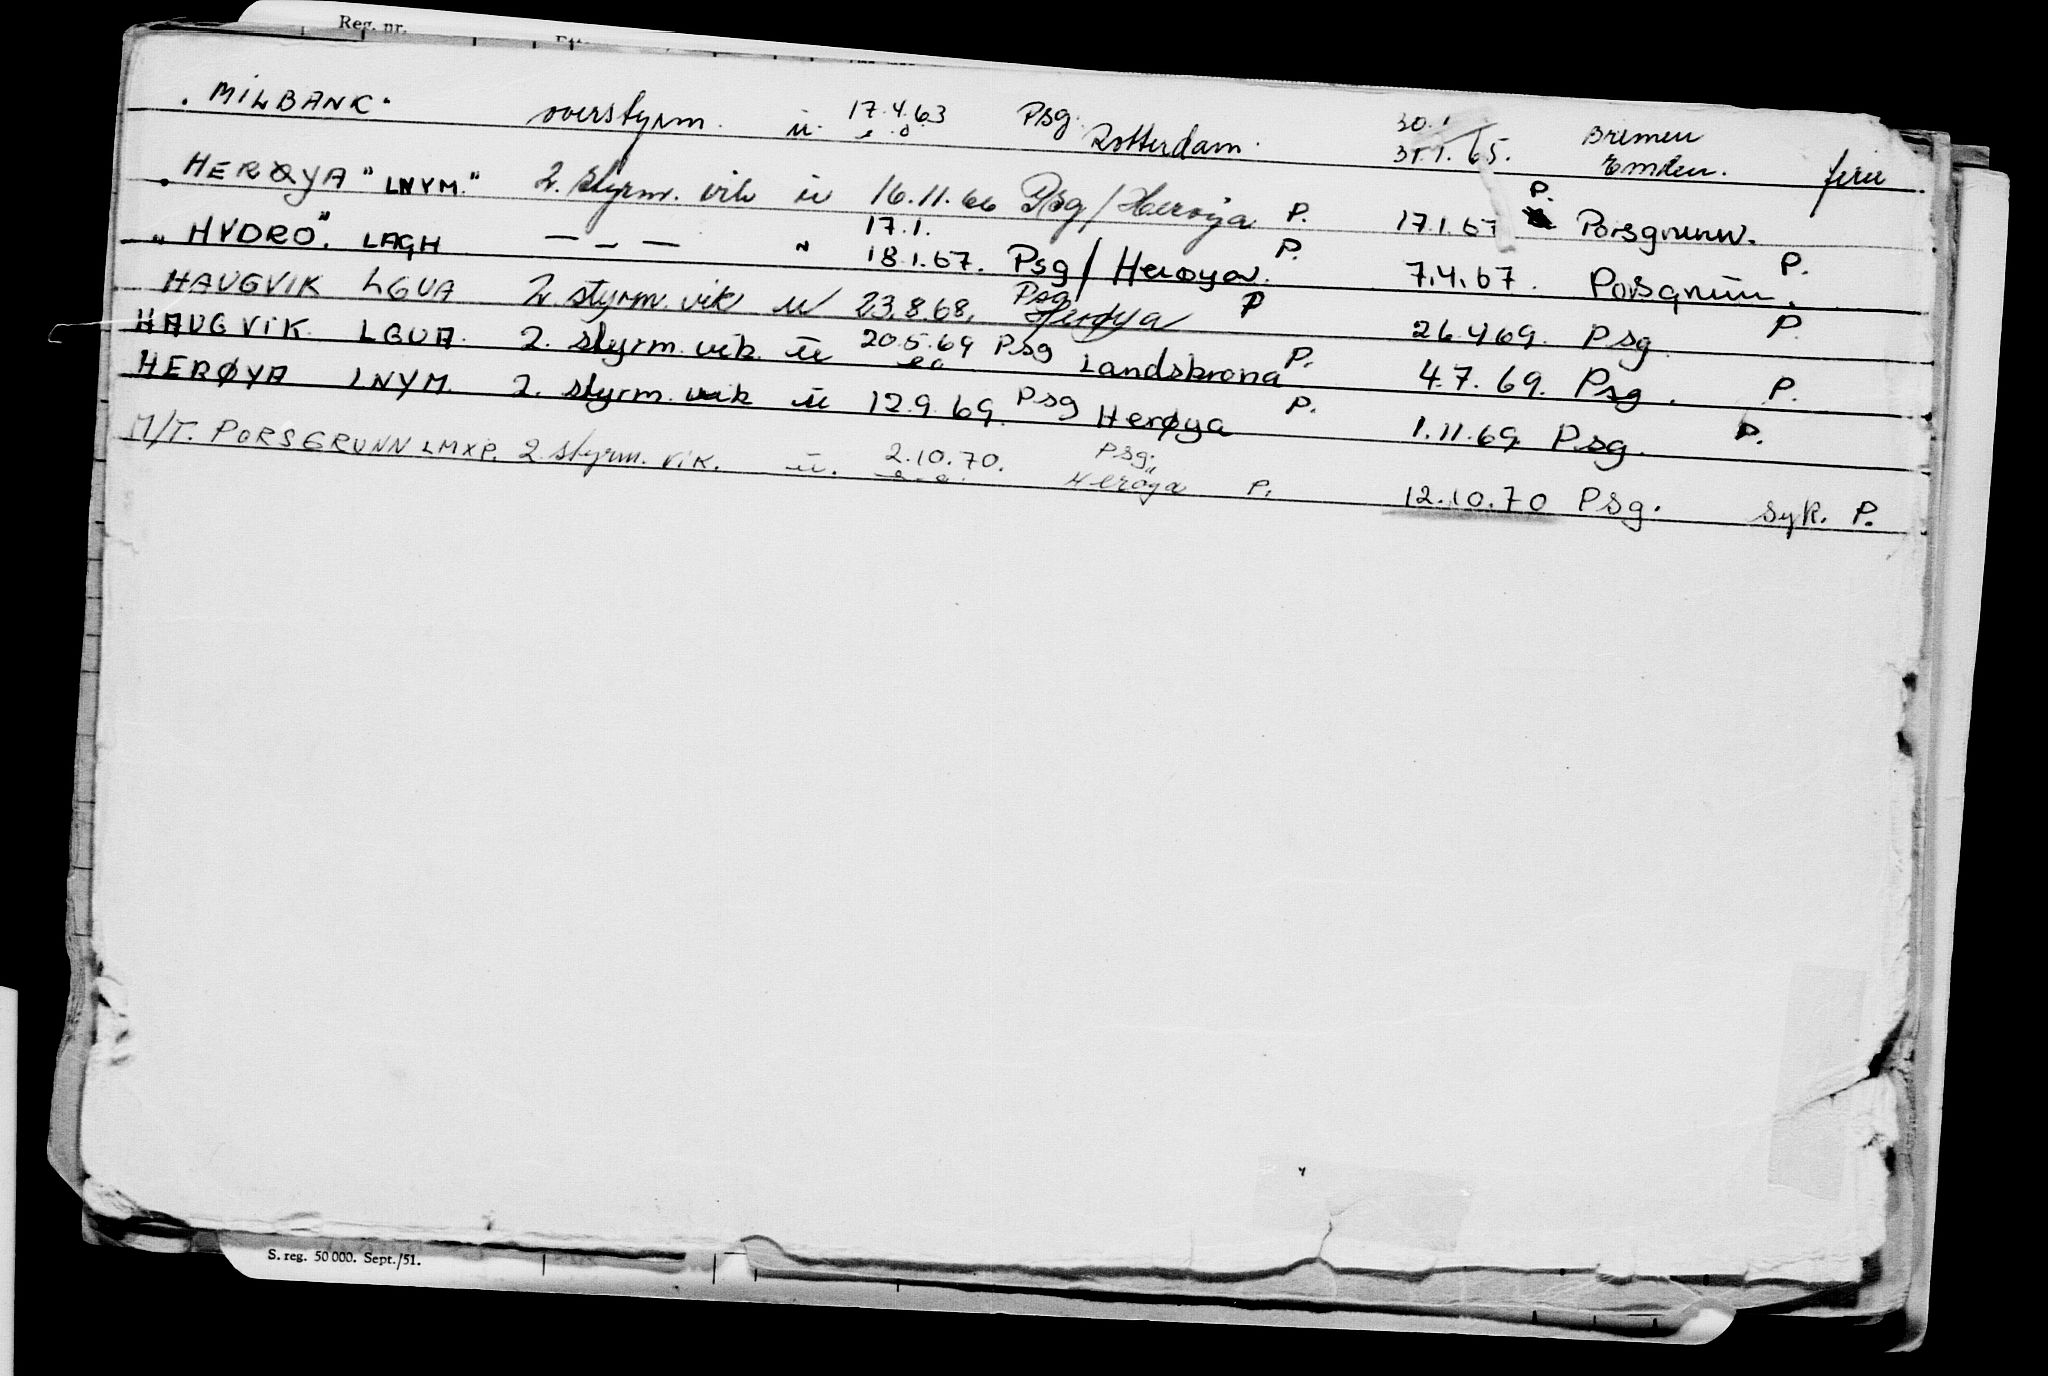 Reg. nr.
"MILBANK" overstyrm. u. 17.4.63 e.o. Psg. Rotterdam. 30.1 31.1.65. Bremen Emden. ferie
"HERØYA" LNYM." 2. styrm. vik u 16.11.66 Psg/Herøya P. 17.1.67 P. Porsgrunn.
"HYDRO". LAGH — – — " 17.1. 18.1.67. Psg/Herøya. P. 7.4.67. Porsgrunn. P.
HAUGVIK LGUA 2 styrm. vik u 23.8.68, Psg Herøya P 26.4.69. Psg P.
HAUGVIK LGUA. 2. styrm. vik. u 20.5.69 eo Psg Landskrona P. 4.7.69. Psg. P.
HERØYA LNYM. 2. styrm. vik u 12.9.69. Psg Herøya P. 1.11.69. Psg. P.
M/T. PORSGRUNN LMXP. 2 styrm. vik. u. 2.10.70. e.o. Psg. Herøya P. 12.10.70 Psg. syk. P.
S. reg. 50 000. Sept./51.